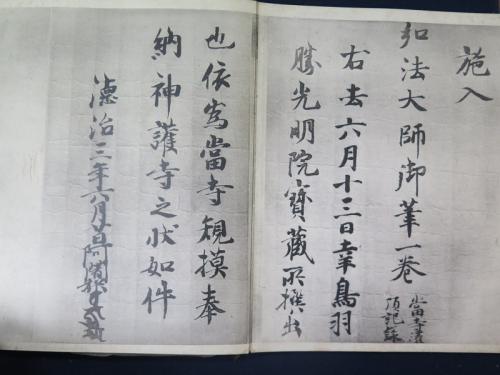 施入
弘法大師御筆一巻
頂記録
右去六月十三日幸鳥羽
勝光明院寶蔵所撰出
也依為當寺規摸奉
納神護寺之状如件
徳治三年六月